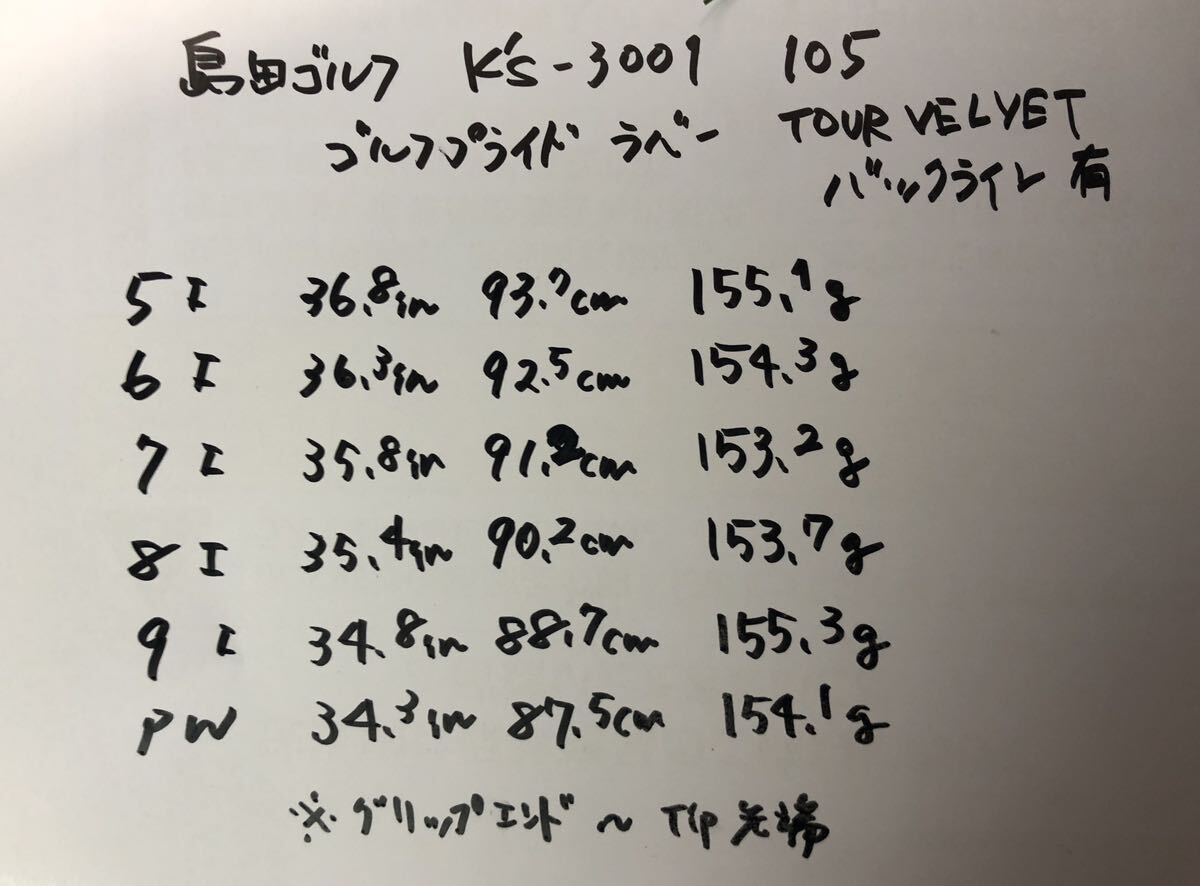 島田ゴルフ K's-3001 105
ゴルフプライド ラバー TOUR VELVET
バックライン 有
5I 36.8in 93.7cm 155.1g
6I 36.3in 92.5cm 154.3g
7I 35.8in 91.2cm 153.2g
8I 35.4in 90.2cm 153.7g
9I 34.8in 88.7cm 155.3g
PW 34.3in 87.5cm 154.1g
※グリップエンド～Tip先端